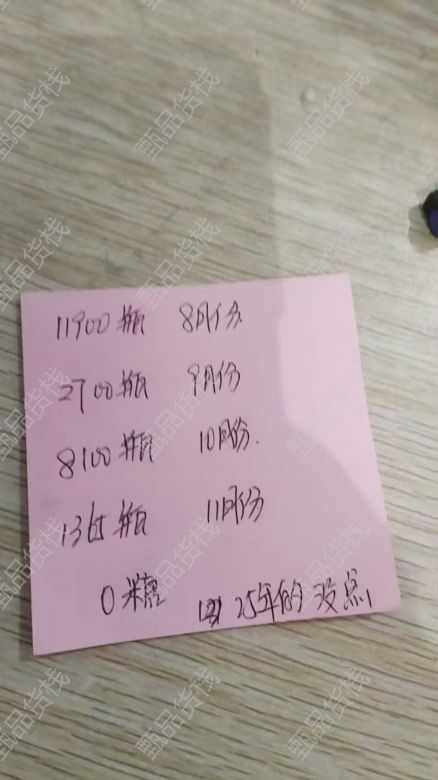 11900瓶 8月份
2700瓶 9月份
8100瓶 10月份.
瓶 11月份
0糖
25年的没点
甄品货栈